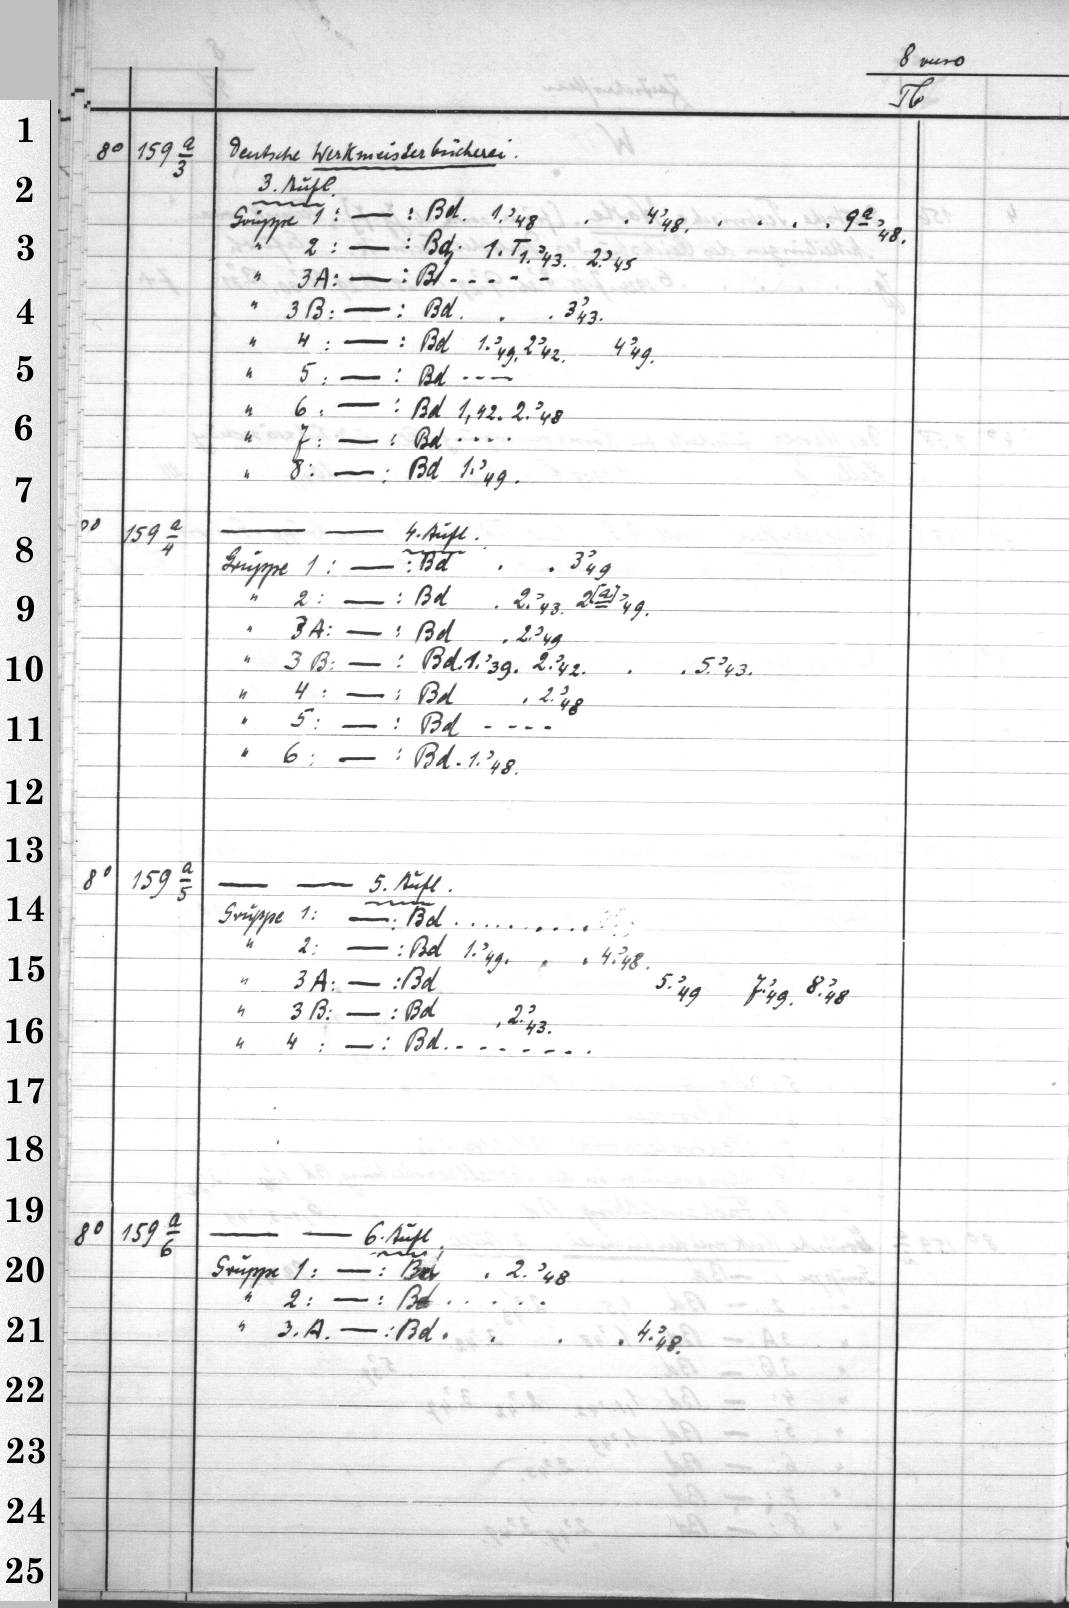 8 vuro
Tb
8° 159 a/3 Deutsche Werkmeisterbücherei.
3. Aufl.
Gruppe 1: — : Bd. 1.'48 . . 4'48. . . . . 9a'48.
" 2: — : Bd. 1. T1.'43. 2.'45
" 3A: — : Bd - - - - -
" 3B: — : Bd. . . 3'43.
" 4: — : Bd 1.'49, 2'42. 4'49.
" 5: — : Bd - - -
" 6: — : Bd 1,42. 2.'48
" 7: — : Bd . . . .
" 8: — : Bd 1.'49.
8° 159 a/4 — — 4. Aufl.
Gruppe 1: — : Bd . . 3'49
" 2: — : Bd . 2.'43. 2[a]'49.
" 3A: — : Bd . 2.'49
" 3B: — : Bd. 1.'39. 2.'42. . . 5.'43.
" 4: — : Bd . 2.'48
" 5: — : Bd - - - -
" 6: — : Bd. 1.'48.
8° 159 a/5 — — 5. Aufl.
Gruppe 1: — : Bd . . . . . . . . . .
" 2: — : Bd 1.'49. . . 4.'48.
" 3A: — : Bd 5.'49 7.'49. 8.'48
" 3B: — : Bd . 2.'43.
" 4: — : Bd. - - - - - - .
8° 159 a/6 — — 6. Aufl.
Gruppe 1: — : Bd . 2.'48
" 2: — : Bd . . . . .
" 3.A. — : Bd . . . . 4.'48.
1
2
3
4
5
6
7
8
9
10
11
12
13
14
15
16
17
18
19
20
21
22
23
24
25